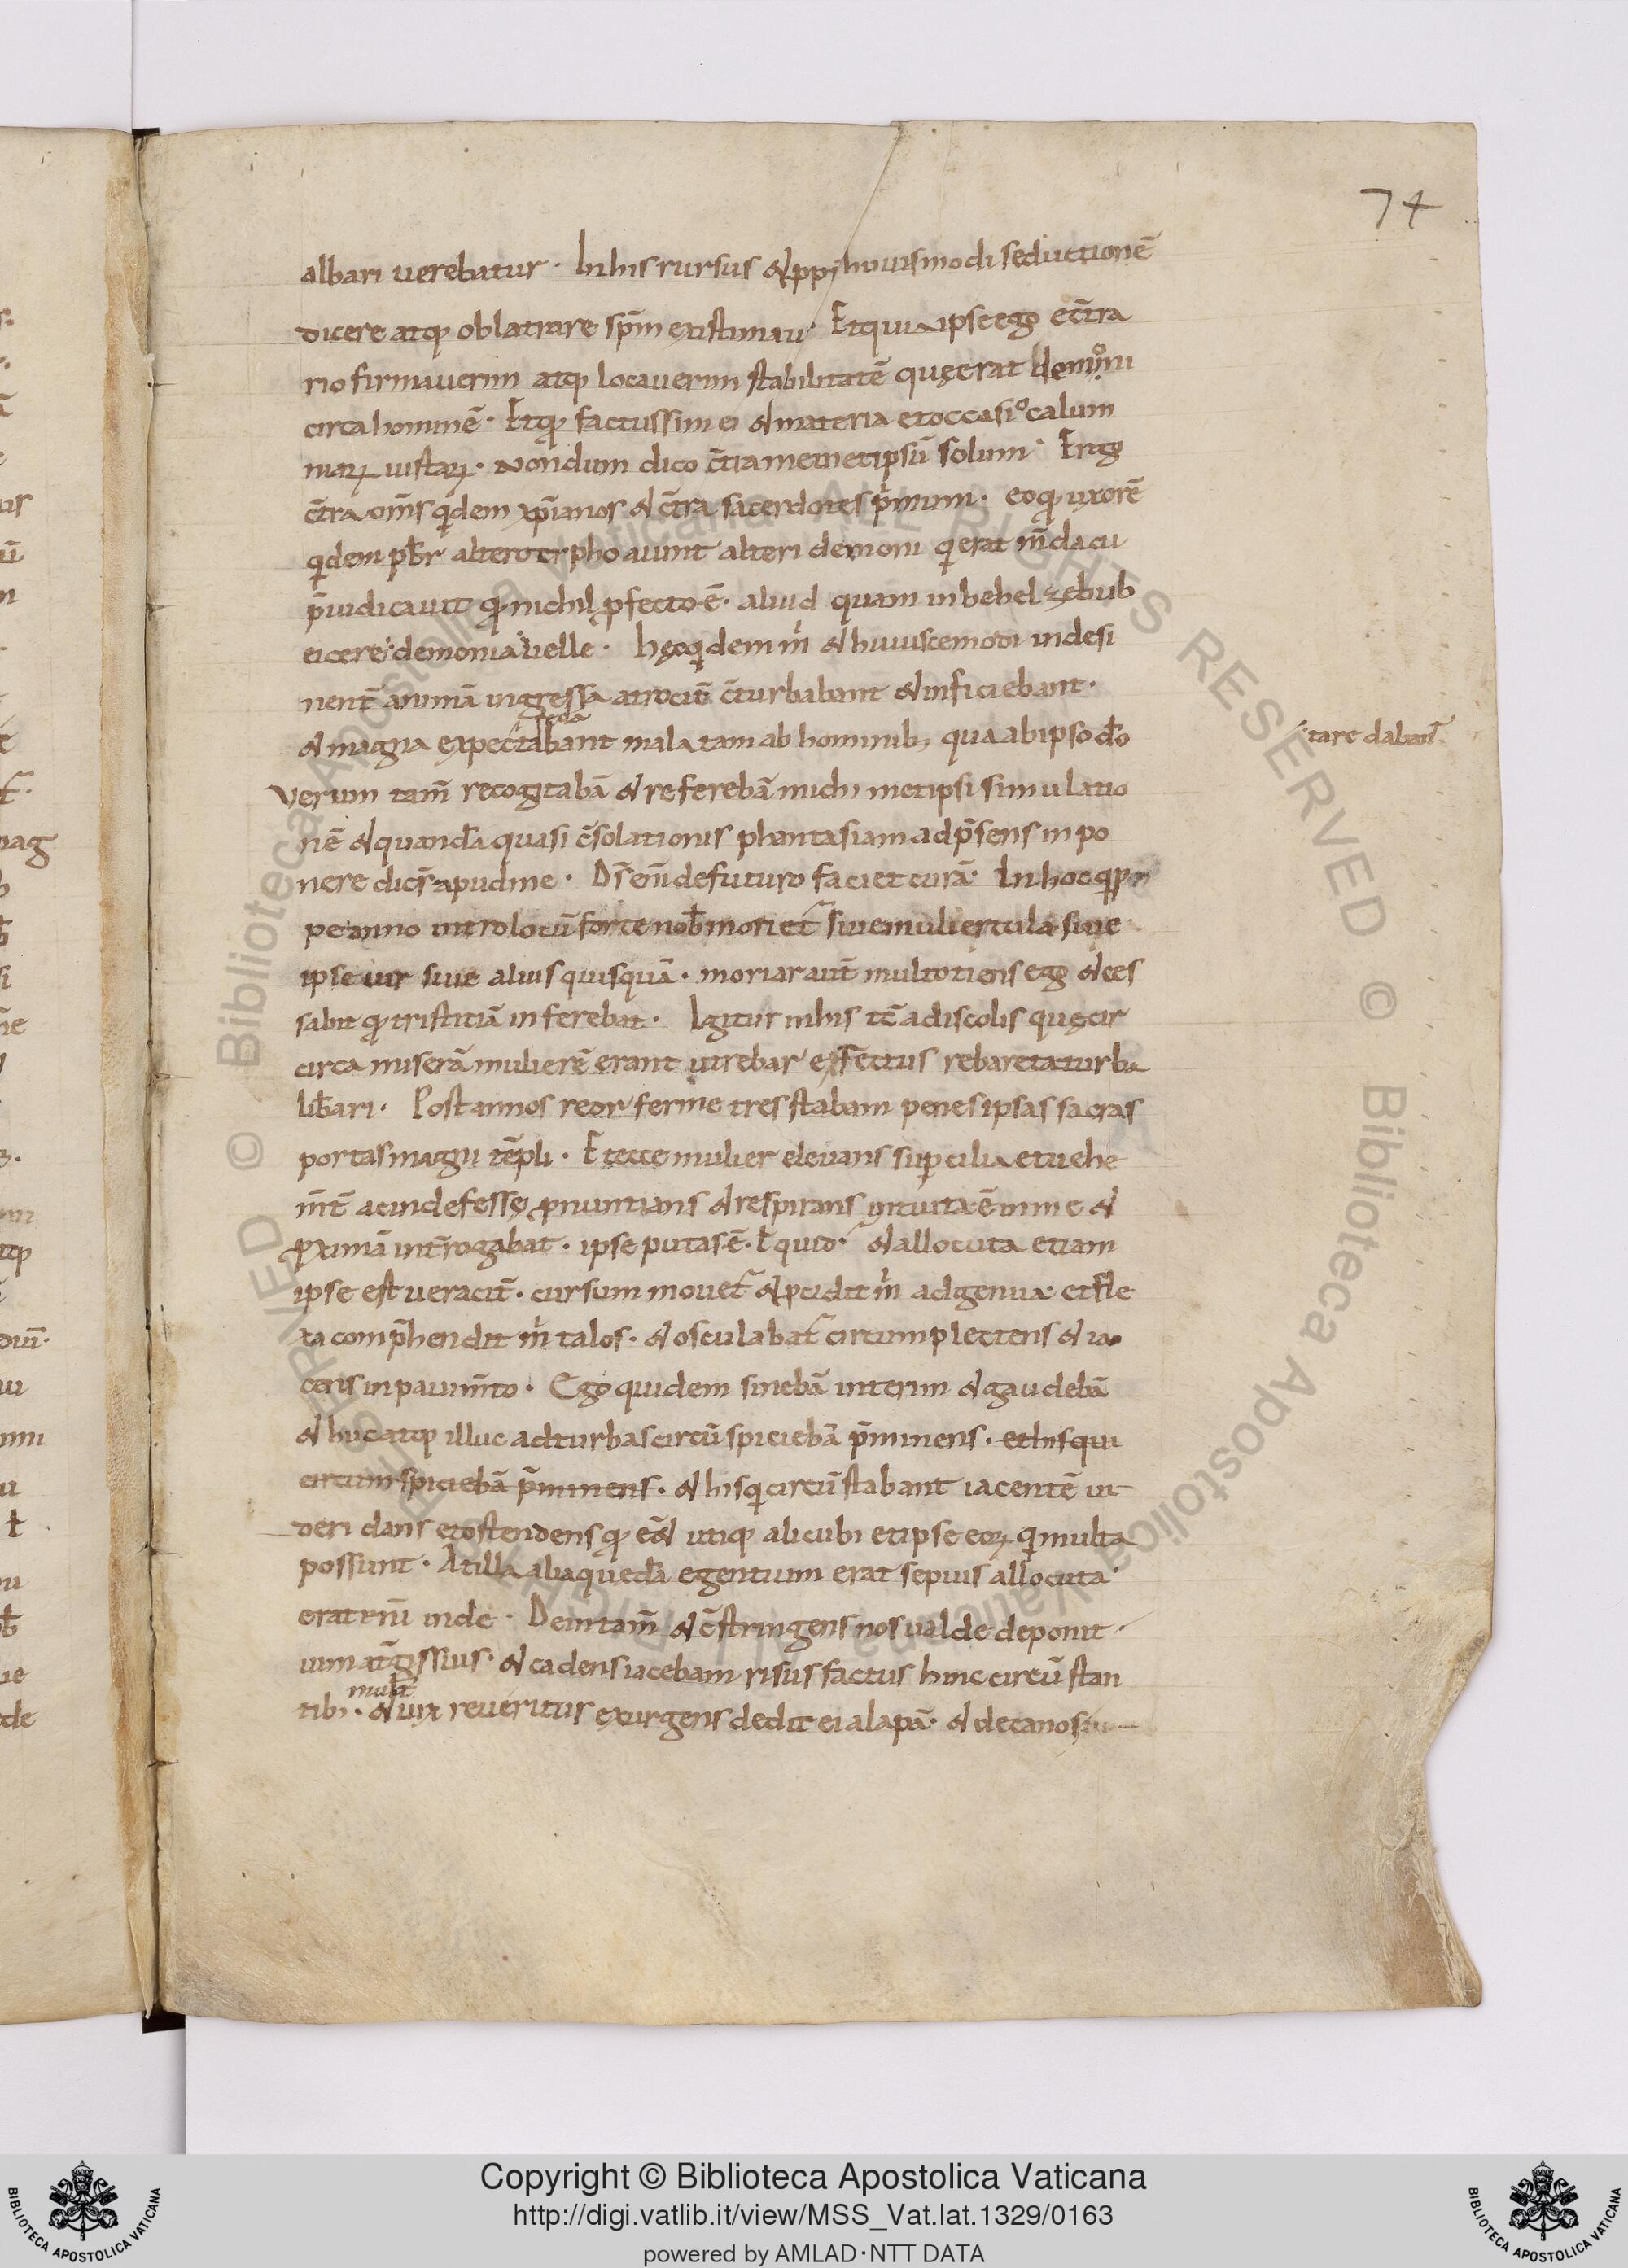 74
albari uerebatur · In his rursus & ꝓpt̄ huiusmodi seductionē
dicere atq; oblatrare sp̄m existimaui · Et quia ipse ego ec̄tra
rio firmauerim atq; locauerim stabilitatē quęerat demoni
circa hominē · Etq; factussim ei & materia et occasio calum
niaꝝ uistaꝝ · Nondum dico c̄tra memetipsū solum · Ergo
c̄tra om̄s qdem xp̄ianos & c̄tra sacerdotes pmum · eoq; uxorē
qdem pb̄r altero aiunt alteri demoni q erat m̄dacu
p̄iudicauit q; nichil ꝓfecto ē · aliud quam in bebel zebub
eicere demonia uelle · hęc qdem m & huiuscemodi indesi
nent̄ animā ingressa atrocit̄ c̄turbabant & inficiebant ·
& magna expectabant mala tam ab hominib; qua ab ipso dō
tare daban̄t
Verum tam̄ recogitabā & referebā michi metipsi simulatio
nē & quandā quasi c̄solationis phantasiam ad p̄sens inpo
nere dic̄s apud me · Ds̄ em̄ de futuro faciet curā · In hoc
pe anno intro locū forte nob̄ moriet̄ siue muliercula siue
ipse uir siue alius quisquā · moriar aut̄ multotiens ego & ces
sabit q; tristitiā inferebat · Igitur in his tc̄ a discolis quęcir
circa miserā mulierē erant utrebar effectus rebar et a turba
lib̄ari · Post annos reor ferme tres stabam penes ipsas sacras
portas magni tēpli · Et ecce mulier eleuans supcilia et uehe
m̄t̄ ac indefesse ꝓnuntians & respirans intuita ē in me &
ꝓximā int̄rogabat · ipse putas ē · ł quid · & allocuta etiam
ipse est ueracit̄ · cursum mouet̄ & pcidit m ad genua et fle
ta comp̄hendit m talos · & osculabat̄ circumplectens & ia
cens in pauim̄to · Ego quidem sinebā interim & gaudebā
& huc atq; illuc ad turbas circū spiciebā p̄minens · et his qui
circumspiciebā p̄minens · & his q circū stabant iacentē ui
deri dans et ostendens q; eēt utiq; alicubi et ipse eoꝝ q multa
possunt · At illa alia quedā egentium erat sepius allocuta
erat inde · Dein tam̄ & c̄stringens nos ualde deponit ·
& cadens iacebam risus factus hinc circū stan
mult̄
tib; · & uix reueritus exurgens dedit ei alapā · & decanos
Copyright © Biblioteca Apostolica Vaticana
http://digi.vatlib.it/view/MSS_Vat.lat.1329/0163
powered by AMLAD·NTT DATA